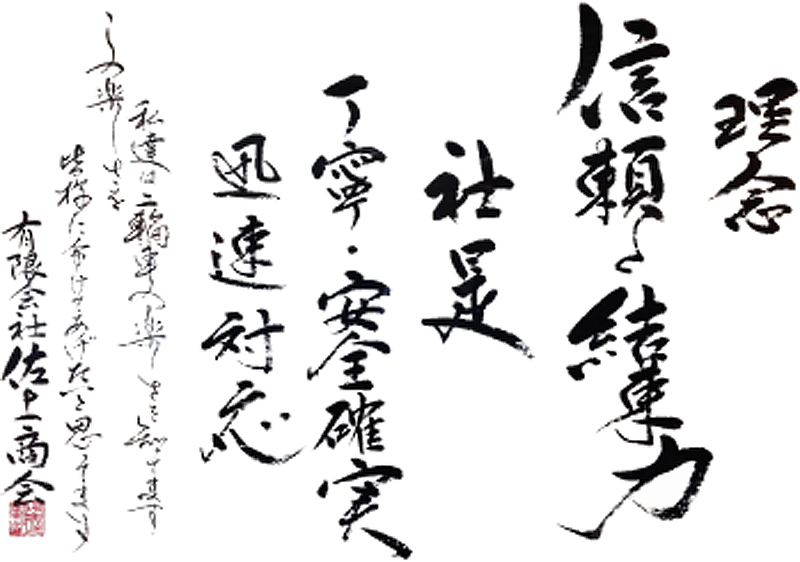 理念
信頼と結束力
社是
丁寧・安全確実
迅速対応
私達は二輪車の楽しさを知ってます
この楽しさを
皆様に分けてあげたいと思ってます
有限会社佐土商会